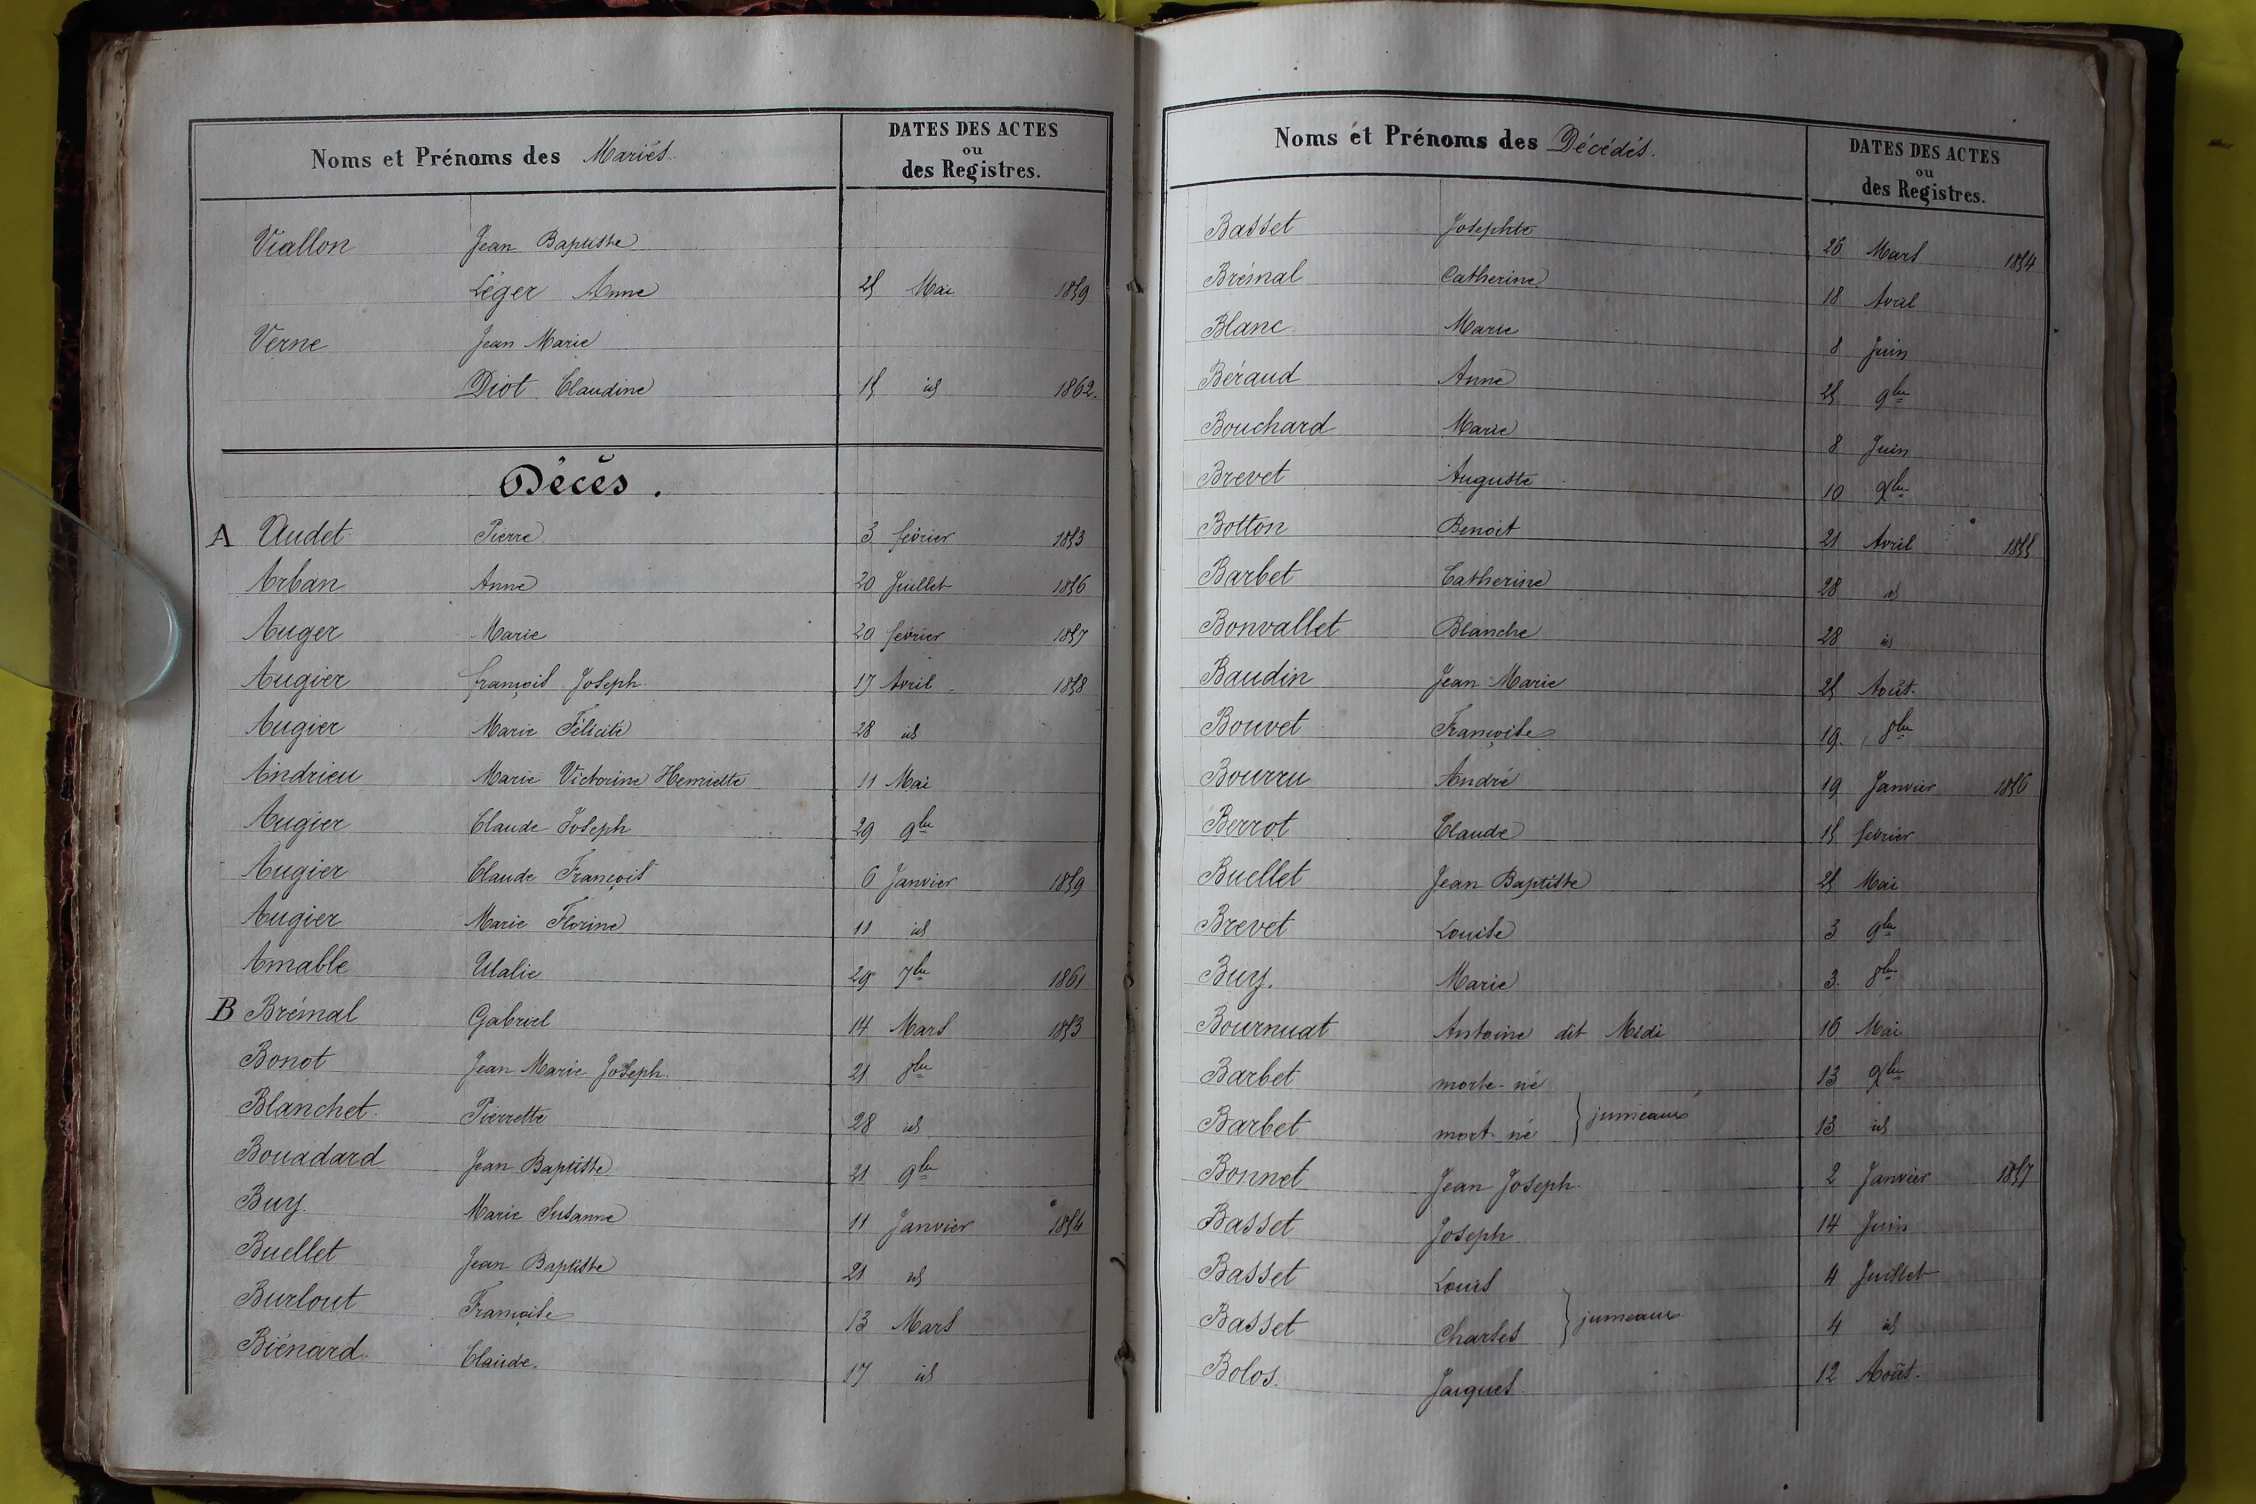 Noms et Prénoms des Mariés.
DATES DES ACTES
ou
des Registres.
Viallon Jean Baptiste
Léger Anne 25 Mai 1859
Verne Jean Marie
Diot Claudine 15 id 1862.
Décès.
A Audet Pierre 3 février 1853
Arban Anne 20 Juillet 1856
Auger Marie 20 février 1857
Augier françois Joseph 17 Avril 1858
Augier Marie Félicité 28 id
Andrieu Marie Victorine Henriette 11 Mai
Augier Claude Joseph 29 9bre
Augier Claude François 6 Janvier 1859
Augier Marie Florine 11 id
Amable Ulalie 29 7bre 1861
B Brémal Gabriel 14 Mars 1853
Bonot Jean Marie Joseph 21 8bre
Blanchet Pierrette 28 id
Bouadard Jean Baptiste 21 9bre
Buy. Marie Susanne 11 Janvier 1854
Buellet Jean Baptiste 21 id
Burlout Françoise 13 Mars
Biénard Claude. 17 id
Noms et Prénoms des Décédés.
DATES DES ACTES
ou
des Registres.
Basset Josephte 26 Mars 1854
Brémal Catherine 18 Avril
Blanc Marie 8 Juin
Béraud Anne 25 9bre
Bouchard Marie 8 Juin
Brevet Auguste 10 9bre
Botton Benoit 21 Avril 1855
Barbet Catherine 28 id
Bonvallet Blanche 28 id
Baudin Jean Marie 25 Août.
Bouvet Françoise 19. 8bre
Bourru André 19 Janvier 1856
Berrot Claude 15 février
Buellet Jean Baptiste 25 Mai
Brevet Louise 3 9bre
Buy. Marie 3. 8bre
Bournuat Antoine dit Midi 16 Mai
Barbet morte-né 13 9bre
jumeaux
Barbet mort-né 13 id
Bonnet Jean Joseph 2 Janvier 1857
Basset Joseph 14 Juin
Basset Louis 4 Juillet
jumeaux
Basset Charles 4 id
Bolos. Jacques 12 Août.